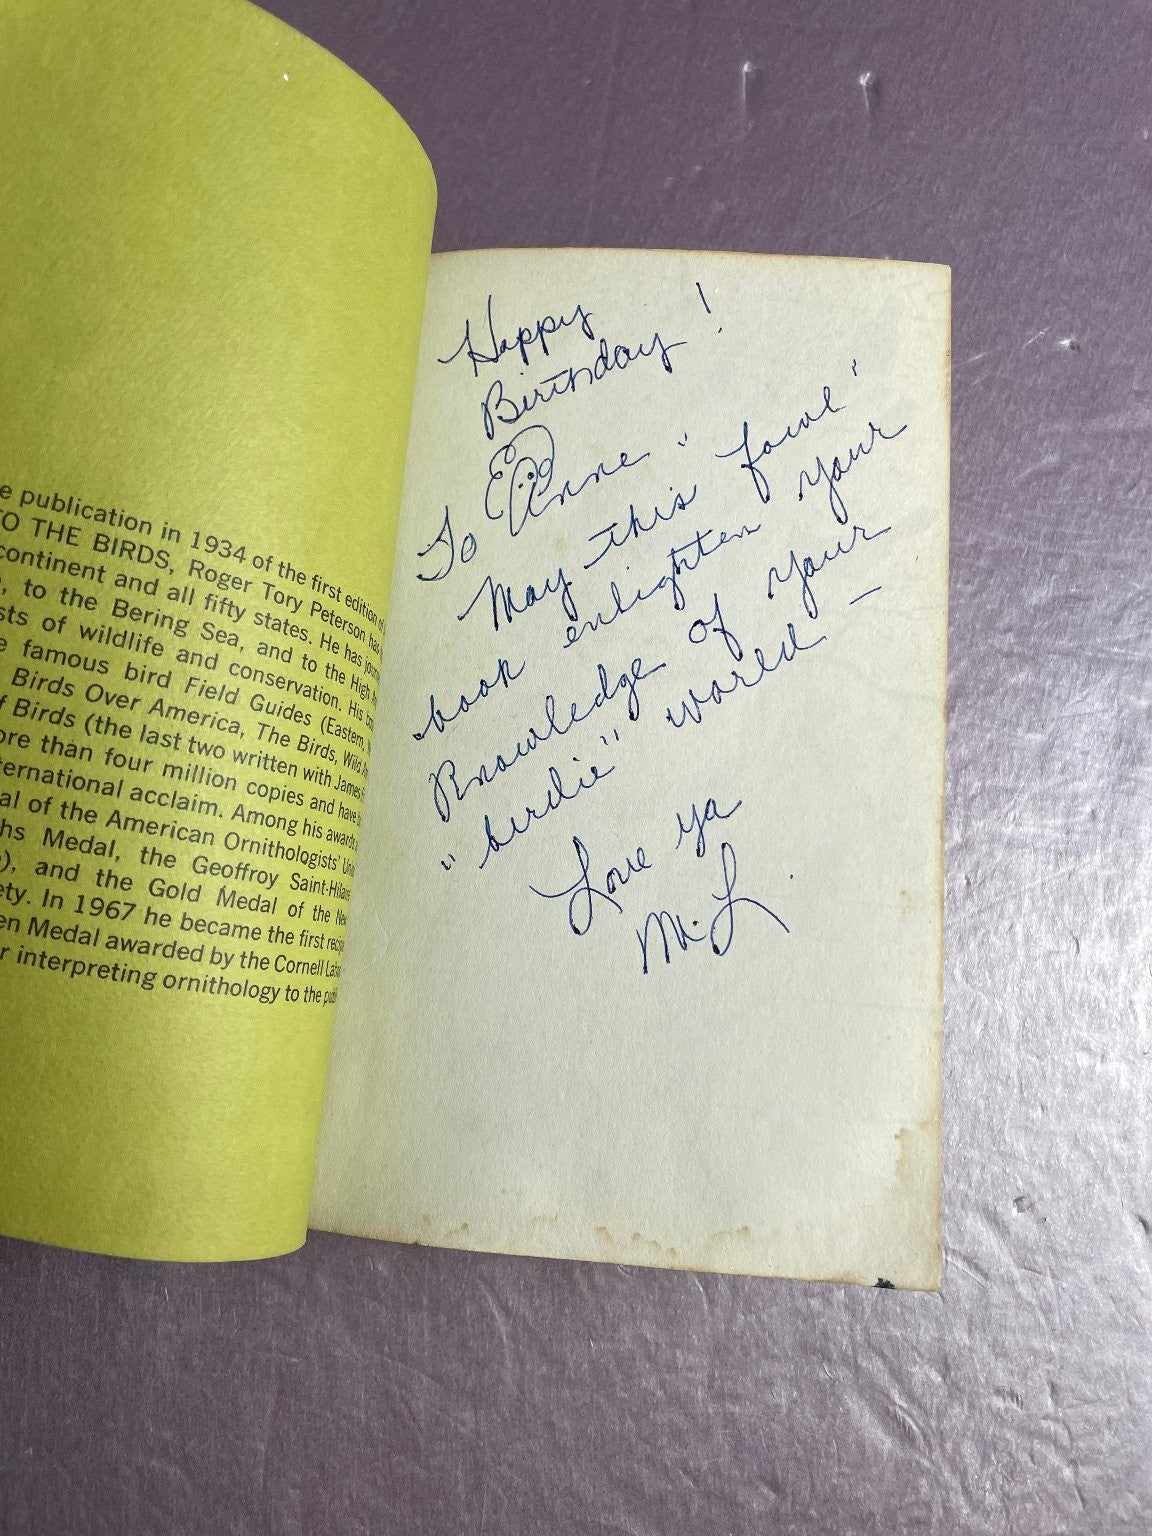 e publication in 1934 of the first edition of
TO THE BIRDS, Roger Tory Peterson has
continent and all fifty states. He has jour
, to the Bering Sea, and to the High
sts of wildlife and conservation. His
e famous bird Field Guides (Eastern,
Birds Over America, The Birds, Wild
f Birds (the last two written with James
ore than four million copies and have
ternational acclaim. Among his awards
al of the American Ornithologists' Un
hs Medal, the Geoffroy Saint-Hilaire
), and the Gold Medal of the New
ety. In 1967 he became the first recip
en Medal awarded by the Cornell Labo
r interpreting ornithology to the publ
Happy
Birthday!
To Anne "
May this fowl"
book enlighten your
Knowledge of your
"birdie" world –
Love ya